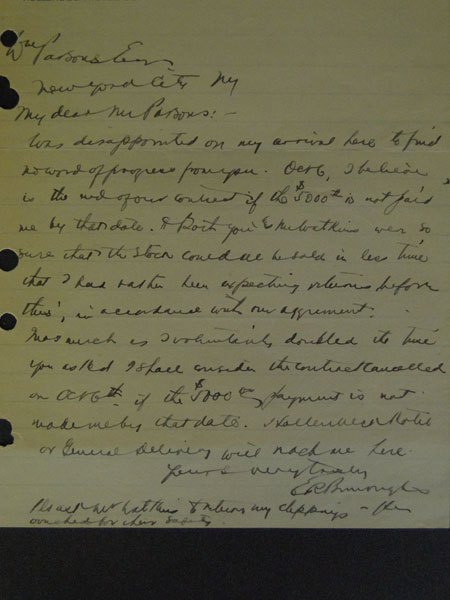 Wm Parsons Esq
New York City NY
My dear Mr Parsons: -
Was disappointed on my arrival here to find
no word of progress from you. Oct 6, I believe
is the end of our contract if the $5000 00 is not paid
me by that date. & Both you & Mr Watkins were so
sure that the stock could be sold in less time
that I had rather been expecting returns before
this, in accordance with our agreement.
Inasmuch as I voluntarily doubled the time
you asked I shall consider the contract cancelled
on Oct 6th if the $5000 00 payment is not
made me by that date. Hollenbeck Hotel
or General Delivery will reach me here.
Yours very truly
E R Burroughs
Please ask Mr Watkins to return my clippings - He
vouched for their safety.